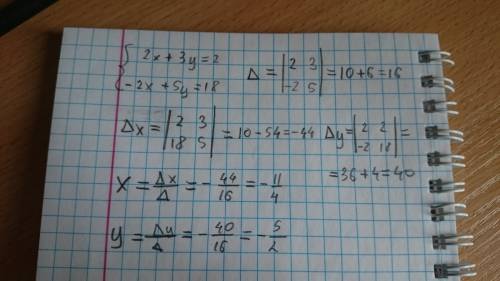 { 2x + 3y = 2
-2x + 5y = 18
Δ = |2 3; -2 5| = 10 + 6 = 16
Δx = |2 3; 18 5| = 10 - 54 = -44
Δy = |2 2; -2 18| =
= 36 + 4 = 40
X = Δx/Δ = -44/16 = -11/4
y = Δy/Δ = -40/16 = -5/2